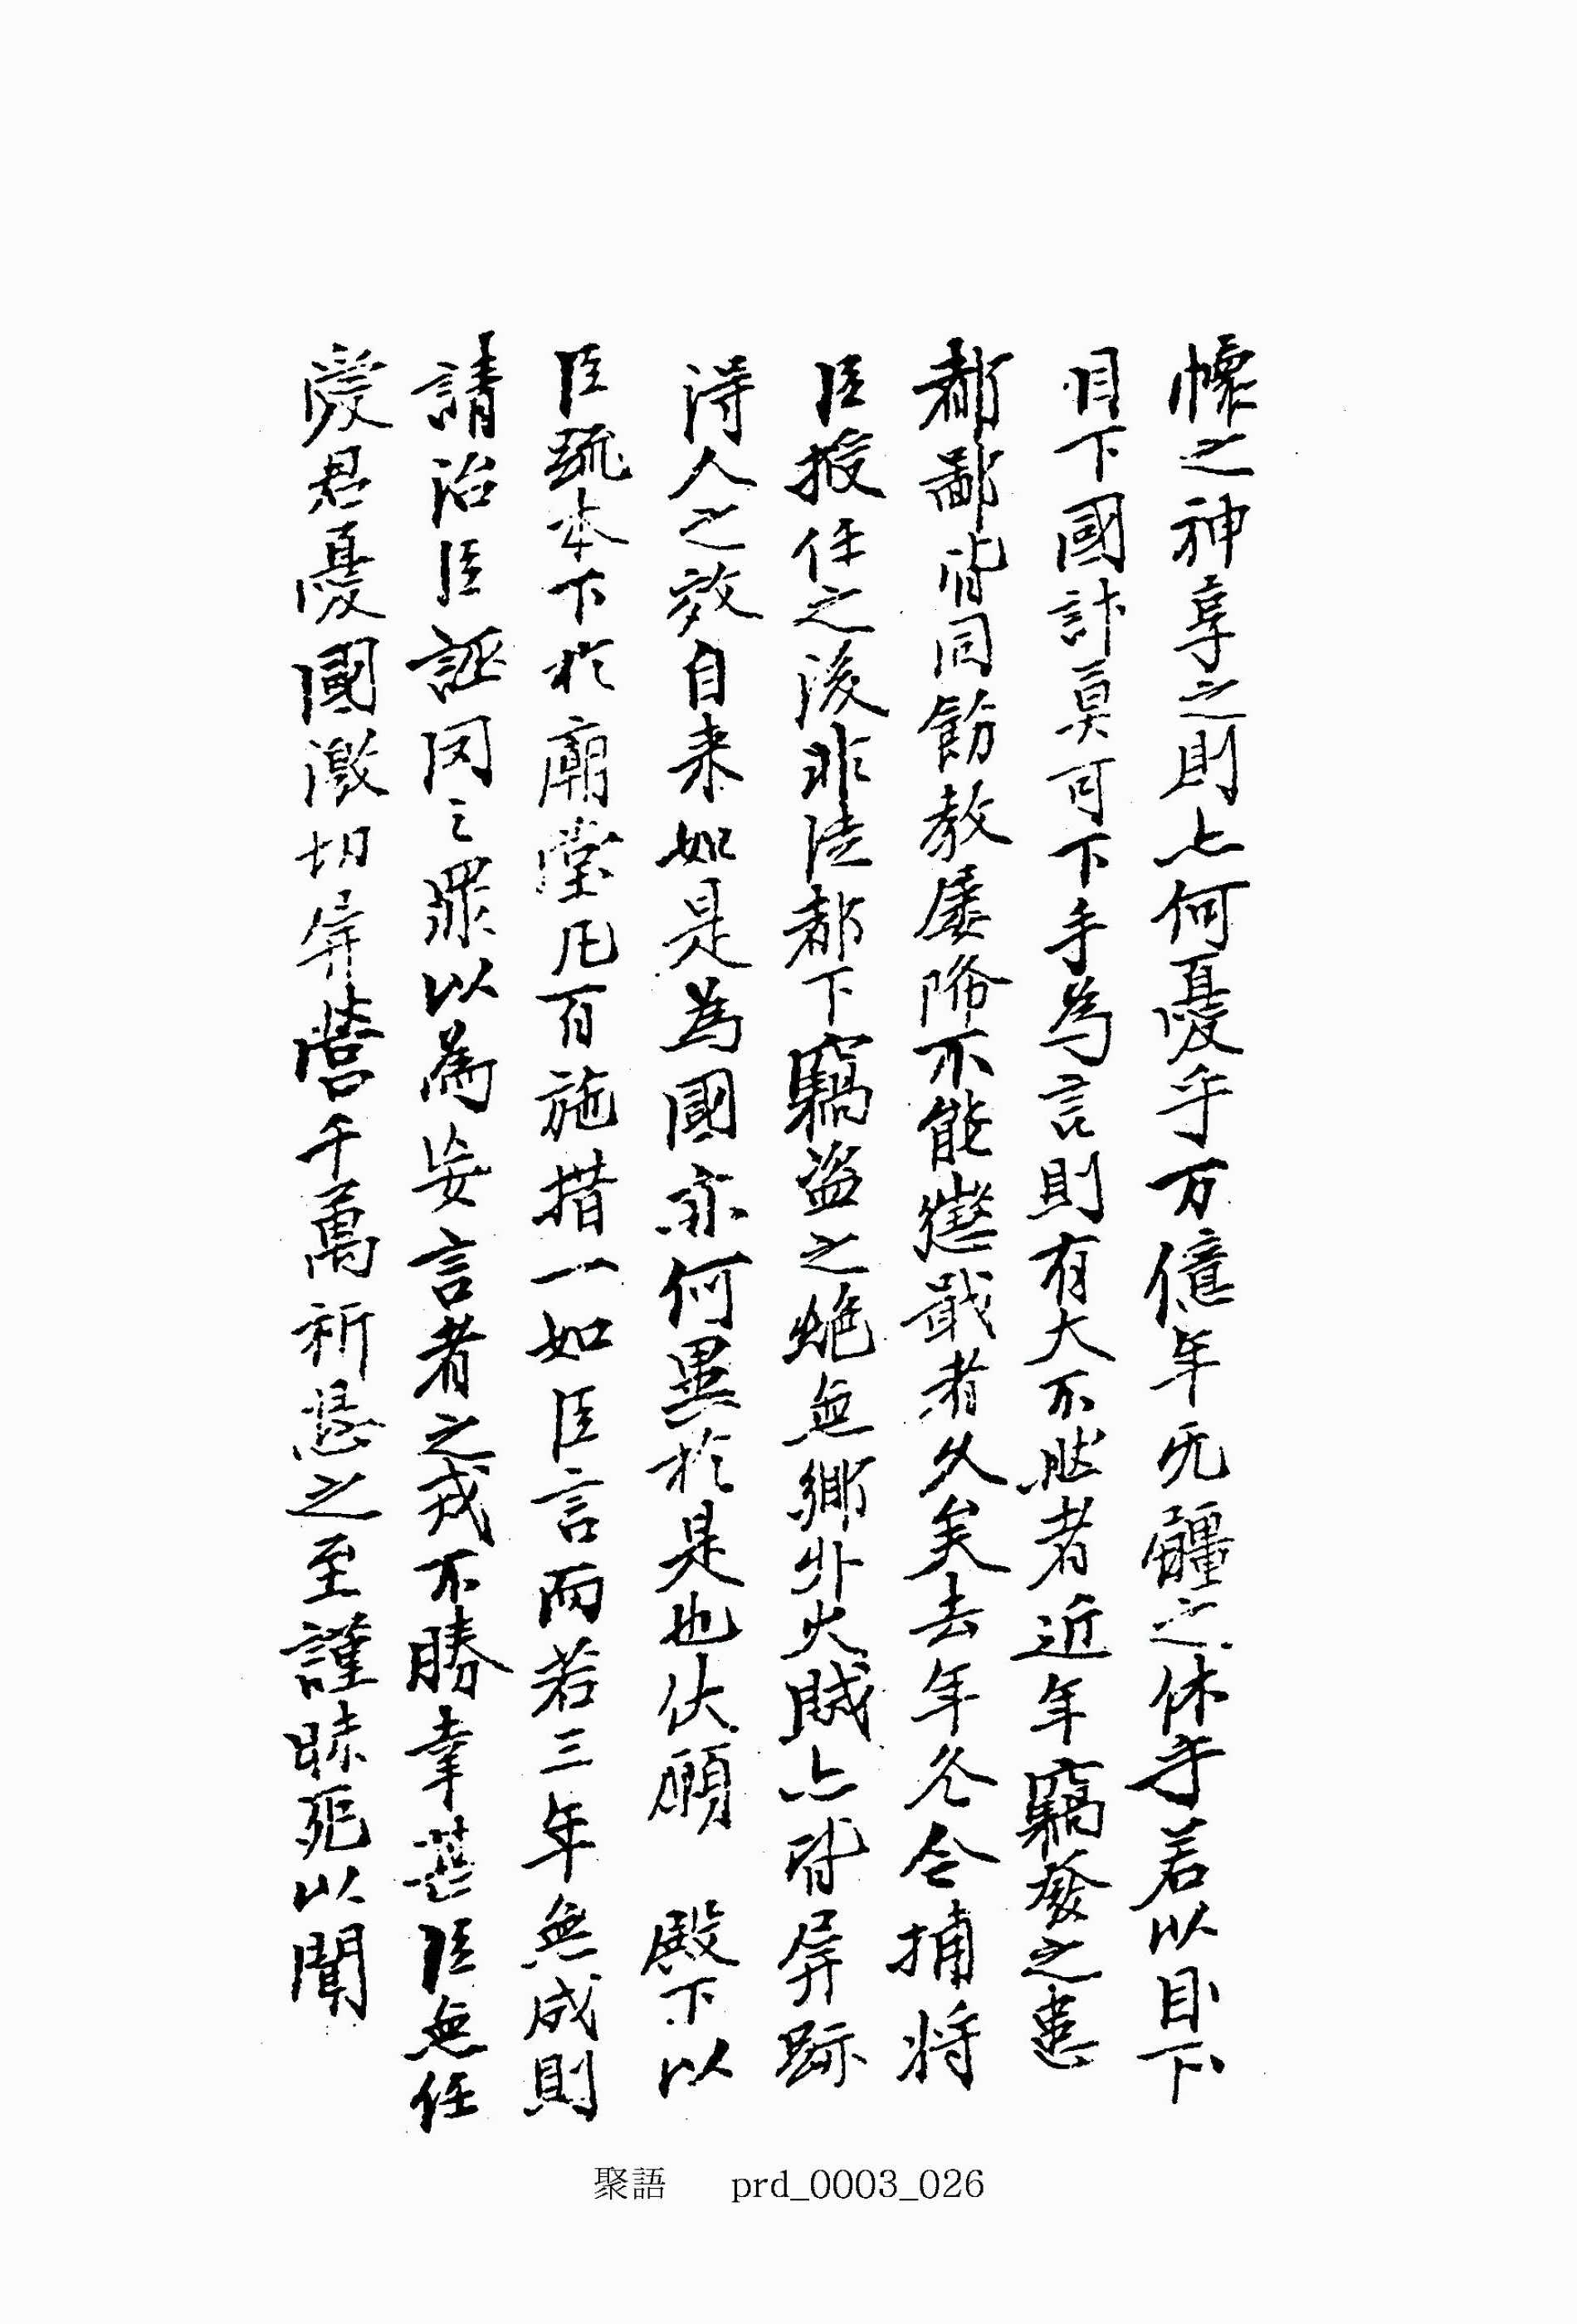 懷之神享之則亦何憂乎万億年无疆之休乎若以目下
目下國計莫可下手為言則有大不然者近年竊發之患
都鄙皆同飭教屢降不能懲戢者久矣去年冬令捕將
臣授任之後非徒都下竊盜之絶無鄉外火賊亦皆屏跡
得人之效自来如是為國亦何異於是也伏願 殿下以
臣疏本下於廟堂凡百施措一如臣言而若三年無成則
請治臣誣罔之罪以為妄言者之戒不勝幸甚臣無任
愛君憂國激切屏營千萬祈懇之至謹昧死以聞
聚語 prd_0003_026